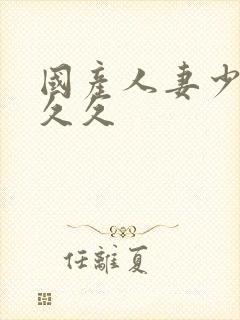 國產人妻少
久久
任離夏